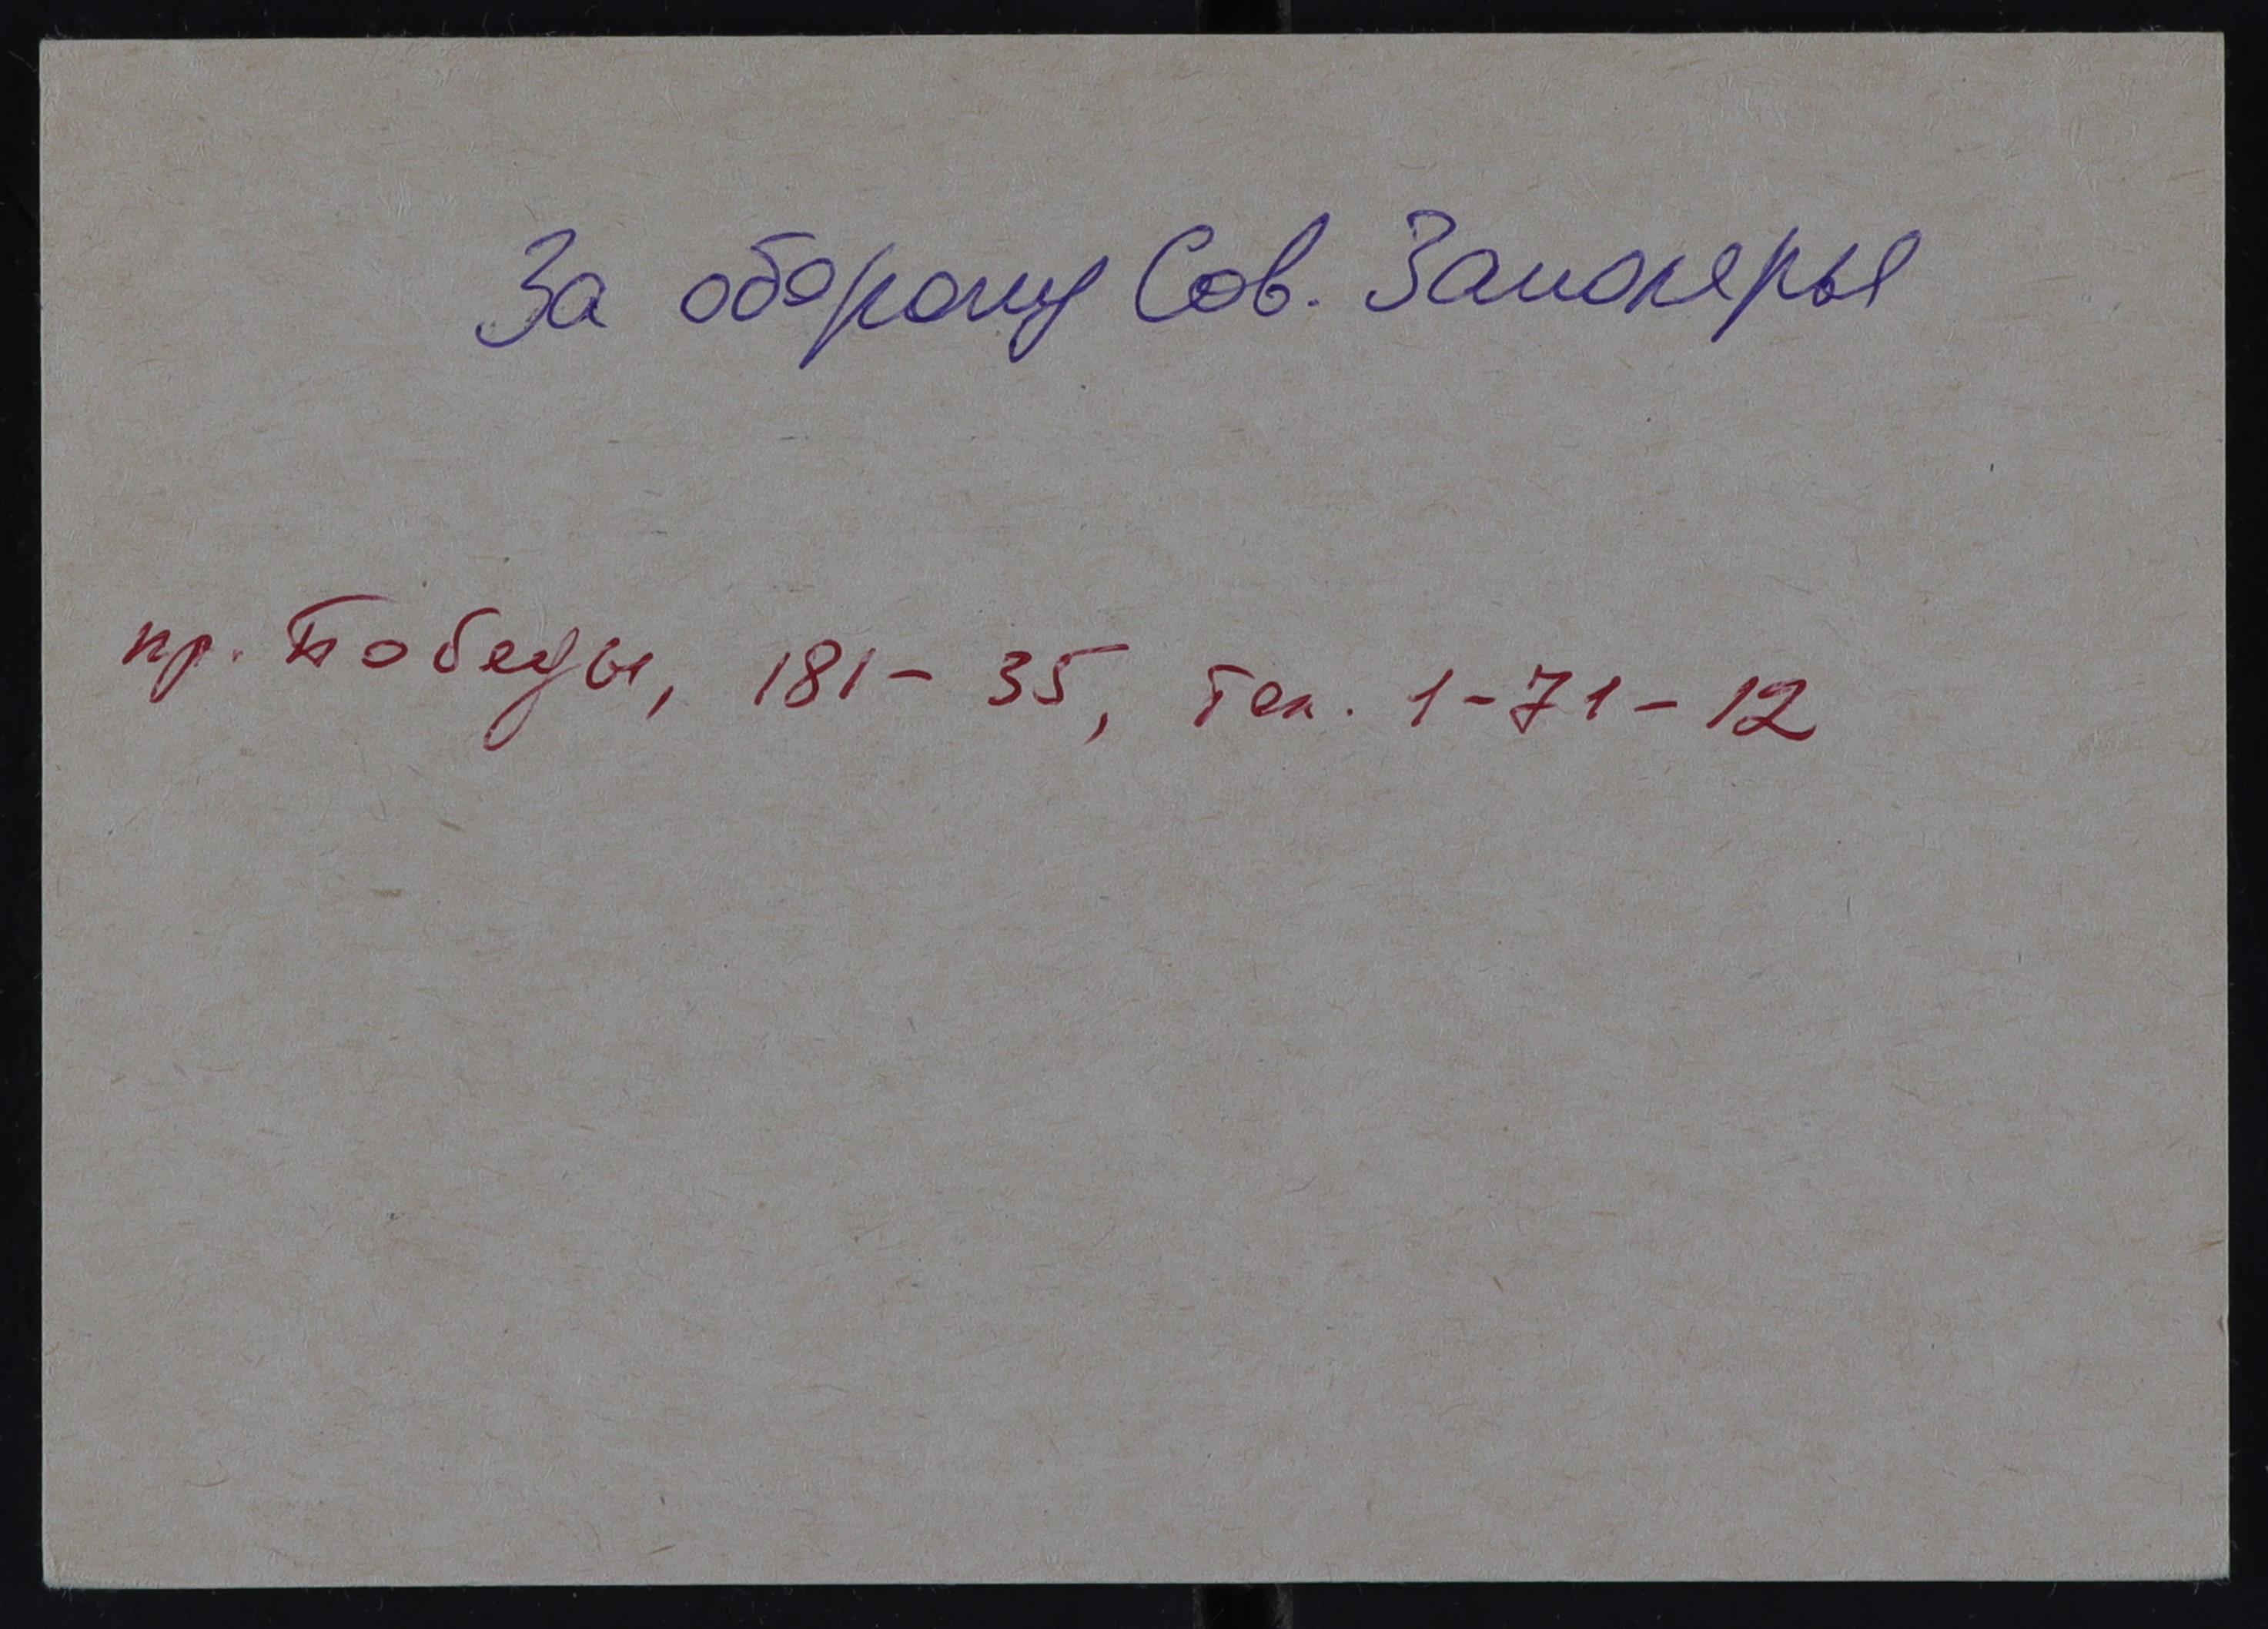 За оборону Сов. Заполярья
пр. Победы, 181- 35, тел. 1-71-12